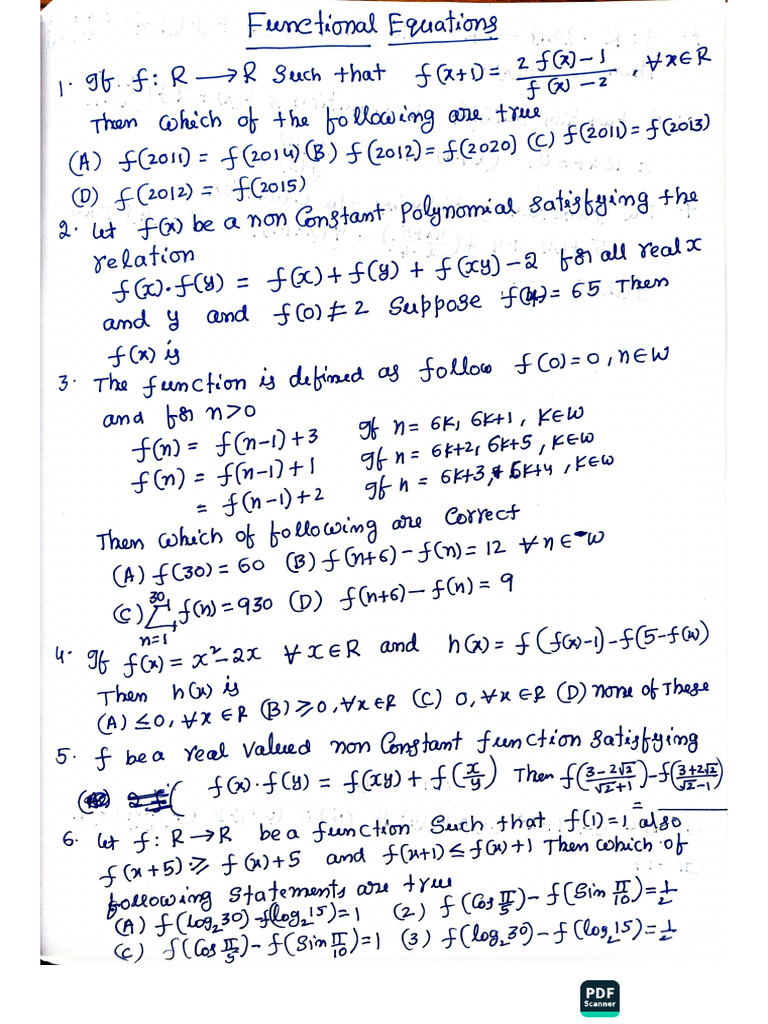 Functional Equations
1. If f: R → R such that f(x+1) = (2 f(x) - 1)/(f(x) - 2), ∀x∈R
Then which of the following are true
(A) f(2011) = f(2014) (B) f(2012) = f(2020) (C) f(2011) = f(2013)
(D) f(2012) = f(2015)
2. Let f(x) be a non constant Polynomial satisfying the
relation
f(x).f(y) = f(x) + f(y) + f(xy) - 2 for all real x
and y and f(0) ≠ 2 Suppose f(4) = 65 Then
f(x) is
3. The function is defined as follow f(0) = 0, n∈W
and for n>0
f(n) = f(n-1) + 3 If n = 6K, 6K+1, K∈W
f(n) = f(n-1) + 1 If n = 6K+2, 6K+5, K∈W
= f(n-1) + 2 If n = 6K+3, 6K+4, K∈W
Then which of following are correct
(A) f(30) = 60 (B) f(n+6) - f(n) = 12 ∀n∈W
(C) ∑_{n=1}^{30} f(n) = 930 (D) f(n+6) - f(n) = 9
4. If f(x) = x² - 2x ∀ x∈R and h(x) = f(f(x)-1) - f(5-f(x))
Then h(x) is
(A) ≤0, ∀x∈R (B) ≥0, ∀x∈R (C) 0, ∀x∈R (D) none of These
5. f be a real valued non constant function satisfying
f(x).f(y) = f(xy) + f(x/y) Then f((3-2√2)/(√2+1)) - f((3+2√2)/(√2-1))
=
6. Let f: R→R be a function such that f(1) = 1 also
f(x+5) ≥ f(x)+5 and f(x+1) ≤ f(x)+1 Then which of
following statements are true
(A) f(log₂30) - f(log₂15) = 1 (2) f(Cos π/5) - f(Sin π/10) = 1/2
(C) f(Cos π/5) - f(Sin π/10) = 1 (3) f(log₂30) - f(log₂15) = 1/2
PDF
Scanner